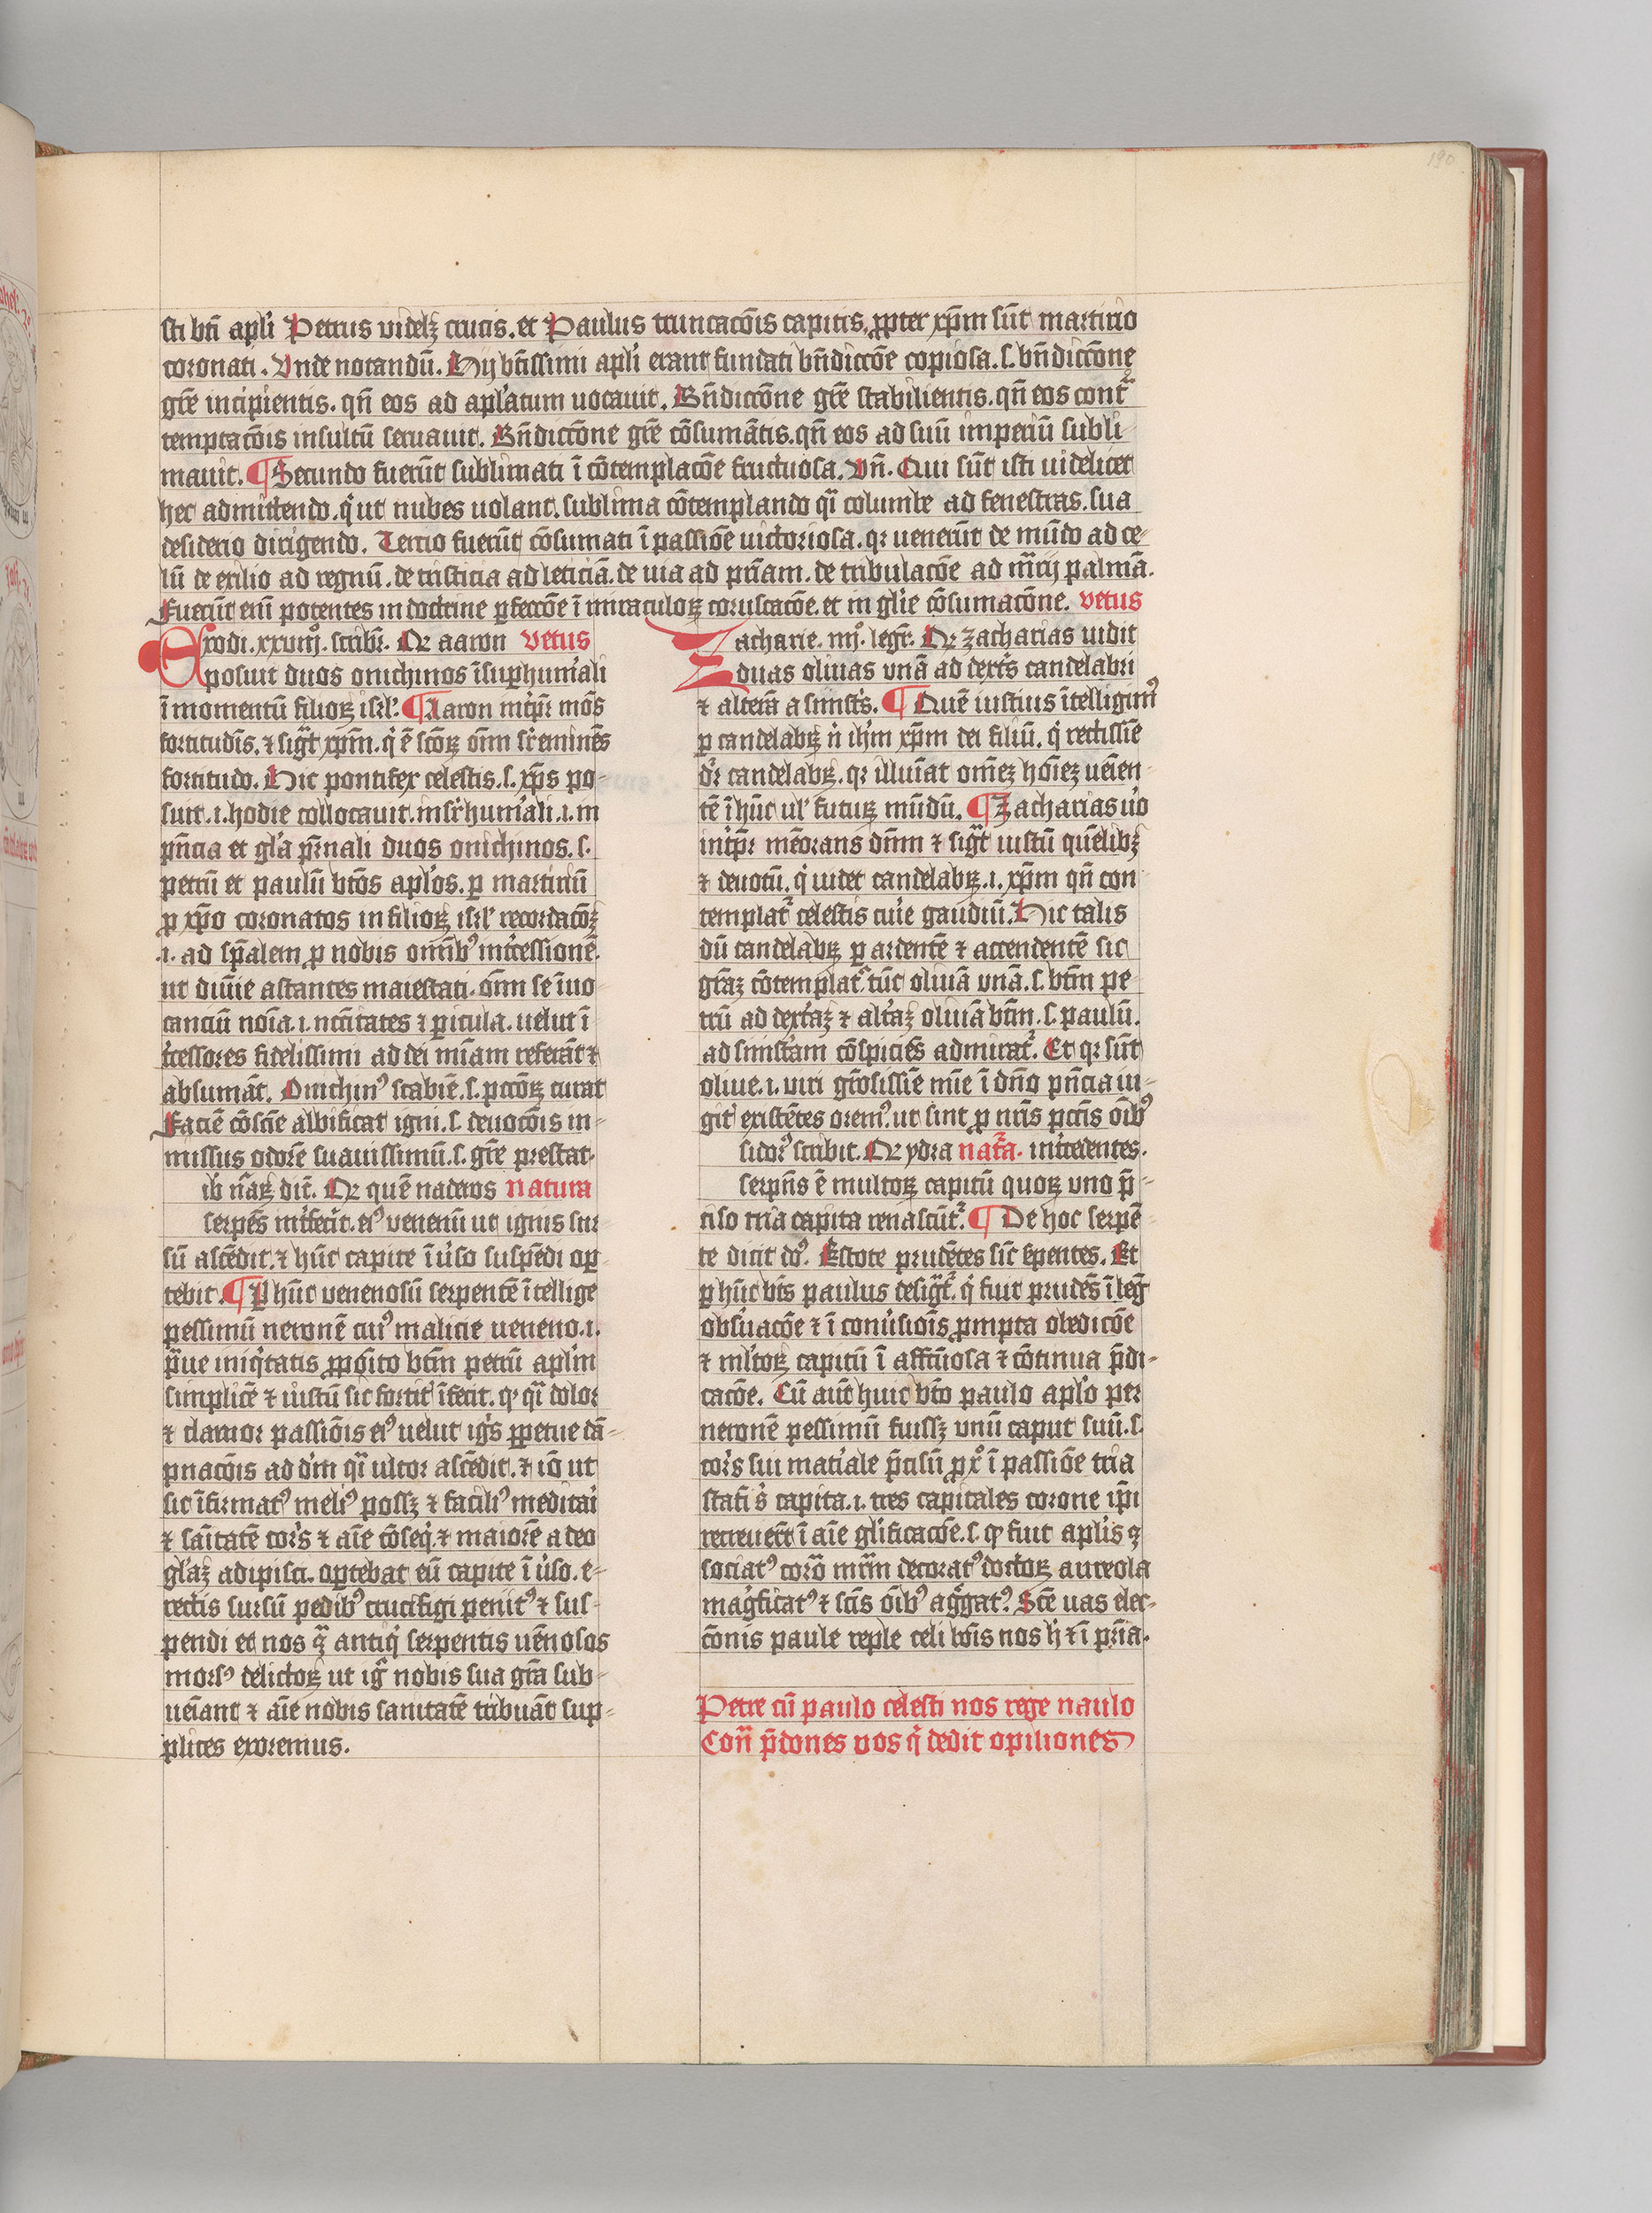 190
sti bti apli Petrus videlz crucis. et Paulus truncacõis capitis, ꝓpter xp̃m sũt martirio
coronati. Vnde notandũ. Hij bt̃issimi apli erant fundati bñdiccõe copiosa. s. bñdiccõne
gr̃e incipientis. qñ eos ad aplatum uocauit. Bñdiccõne gr̃e stabilientis. qñ eos cont̃
temptacõis insultũ seruauit. Bñdiccõne gr̃e cõsumãtis. qñ eos ad suũ imperiũ subli-
mauit. ¶ Secundo fuerũt sublimati ĩ cõtemplacõe fructuosa. Vñ. Qui sũt isti uidelicet
hec admittendo. q̇ ut nubes uolant. sublima cõtemplando qĩ columbe ad fenestras. sua
desiderio dirigendo. Tercio fuerũt cõsumati ĩ passiõe uictoriosa. qꝛ uenerũt de mũdo ad ce-
lũ de exilio ad regnũ. de tristicia ad leticiã. de uia ad pr̃iam. de tribulacõe ad m̃cij palmã.
Fuerũt enĩ potentes in doctrine ꝑfeccõe ĩ miraculoꝝ coruscacõe. et in gl̃ie cõsumacõne. vetus
Exodi. xxviij. scribr̃. Qꝛ aaron vetus
posuit duos onichinos ĩ suꝑhum̃ali
ĩ momentũ filioꝝ isrl̃. ¶ Aaron int̃pr̃ mõs
fortitudĩs. ⁊ sig̃t xp̃m. q̇ ẽ scõꝝ om̃ sr̃eminẽs
fortitudo. Hic pontifex celestis. s. xp̃s po-
suit. i. hodie collocauit. in sr̃hum̃ali. i. in
pñcia et gl̃a pr̃nali duos onichinos. s.
petrũ et paulũ bt̃os apl̃os. ꝑ martiriũ
ꝓ xp̃o coronatos in filioꝝ isrl̃ recordacõꝫ
.i. ad sp̃alem ꝓ nobis om̃ib⁹ int̃cessionẽ.
ut diuĩe astantes maiestati. om̃ se ĩuo-
canciũ noĩa. i. nc̃citates ⁊ ꝑicula. uelut ĩ-
t̃cessores fidelissimi ad dei mĩam referãt ⁊
absumãt. Onichin⁹ scabiẽ. s. pccõꝝ curat
Faciẽ cõscĩe albificat igni. s. deuocõis in-
missus odorẽ suauissimũ. s. gr̃e prestat.
ib nãꝝ dic̃. Qꝛ quẽ naderos Natura
serpẽs int̃fecit. ei⁹ venenũ ut ignis sur
sũ ascẽdit. ⁊ hũc capite ĩ ũso suspẽdi oꝑ
tebit. ¶ P hũc venenosũ serpentẽ ĩtellige
pessimũ neronẽ cui⁹ malicie ueneno. i.
p̃ue iniq̇tatis ꝓpõito btm̃ petrũ aplm̃
simplicẽ ⁊ iustũ sic fortit̃ ĩfecit. qꝛ qĩ dolor
⁊ clamor passiõis ei⁹ uelut ig̃s ꝑpetue dã-
pnacõis ad dm̃ qĩ ultor ascẽdit. ⁊ iõ ut
sic ĩfirmat⁹ meli⁹ possꝫ ⁊ facili⁹ meditai
⁊ saĩtatẽ cor̃s ⁊ aĩe cõseq̇. ⁊ maiorẽ a deo
gl̃aꝫ adipisci. oꝑtebat eũ capite ĩ ũso. e-
rectis sursũ pedib⁹ crucifigi penit⁹ ⁊ sus-
pendi et nos q̃ antiq̇ serpentis uẽnosos
mors⁹ delictoꝝ ut ig̃ nobis sua gr̃a sub-
ueĩant ⁊ aĩe nobis sanitatẽ tribuãt sup-
plices exoremus.
Zacharie. iiij. legr̃. Qꝛ zacharias uidit
duas oliuas vnã ad dext̃s candelabri
⁊ alterã a sinist̃s. ¶ Quẽ iustius ĩtelligim⁹
ꝑ candelabꝝ ñ ihm̃ xp̃m dei filiũ. q̇ rectissĩe
dr̃ candelabꝝ. qꝛ illuĩat om̃eꝫ hoĩeꝫ ueĩen-
tẽ ĩ hũc ul̃ futuꝝ mũdũ. ¶ Zacharias ũo
int̃pr̃ mẽorans dm̃m ⁊ sig̃t iustũ quẽlibꝫ
⁊ deuotũ. q̇ uidet candelabꝝ. i. xp̃m qñ con
templat̃ celestis curie gaudiũ. Hic talis
dũ candelabꝝ ꝑ ardentẽ ⁊ accendentẽ sic
gr̃aꝫ cõtemplat̃ tũc oliuã vnã. s. btm̃ pe-
trũ ad dext̃aꝫ ⁊ alt̃aꝫ oliuã btm̃. s. paulũ.
ad sinist̃am cõspiciẽs admirat̃. Et qꝛ sũt
oliue. i. viri gr̃osissĩe mĩe ĩ dño pñcia iu-
git̃ existẽtes orem⁹. ut sint ꝓ nr̃is pctĩs oĩb⁹
sidor⁹ scribit. Qꝛ ydra nat̃a. int̃cedentes.
serpñs ẽ multoꝝ capitũ quoꝝ vno p̃-
ciso tria capita renascũt̃. ¶ De hoc serpẽ-
te dicit do⁹. Estote prudẽtes sic̃ serpentes. Et
ꝑ hũc bt̃s paulus desig̃t̃. q̇ fuit prudẽs ĩ leg̃
obsũacõe ⁊ ĩ conũsiõis ꝓmpta obedicõe
⁊ ml̃toꝝ capitũ ĩ affc̃uosa ⁊ cõtinua p̃di-
cacõe. Cũ aut̃ huic bt̃o paulo apl̃o per
neronẽ pessimũ fuissꝫ vnũ caput suũ. s.
cor̃s sui mat̃iale p̃cisũ ꝓ xo̊ ĩ passiõe tria
statĩ s̃ capita. i. tres capitales corone ip̃i
recreuerũt ĩ aĩe gl̃ificacõe. s. qꝛ fuit aplis ꝯ
sociat⁹ corõ mr̃m decorat⁹ doctoꝝ aureola
mag̃ficat⁹ ⁊ scĩs oĩb⁹ agg̃at⁹. Scẽ uas elec-
cõnis paule reple celi bõis nos h̃ ⁊ ĩ pr̃ia.
Petre cũ paulo celesti nos rege naulo
Coñ p̃dones vos q̇ dedit opiliones